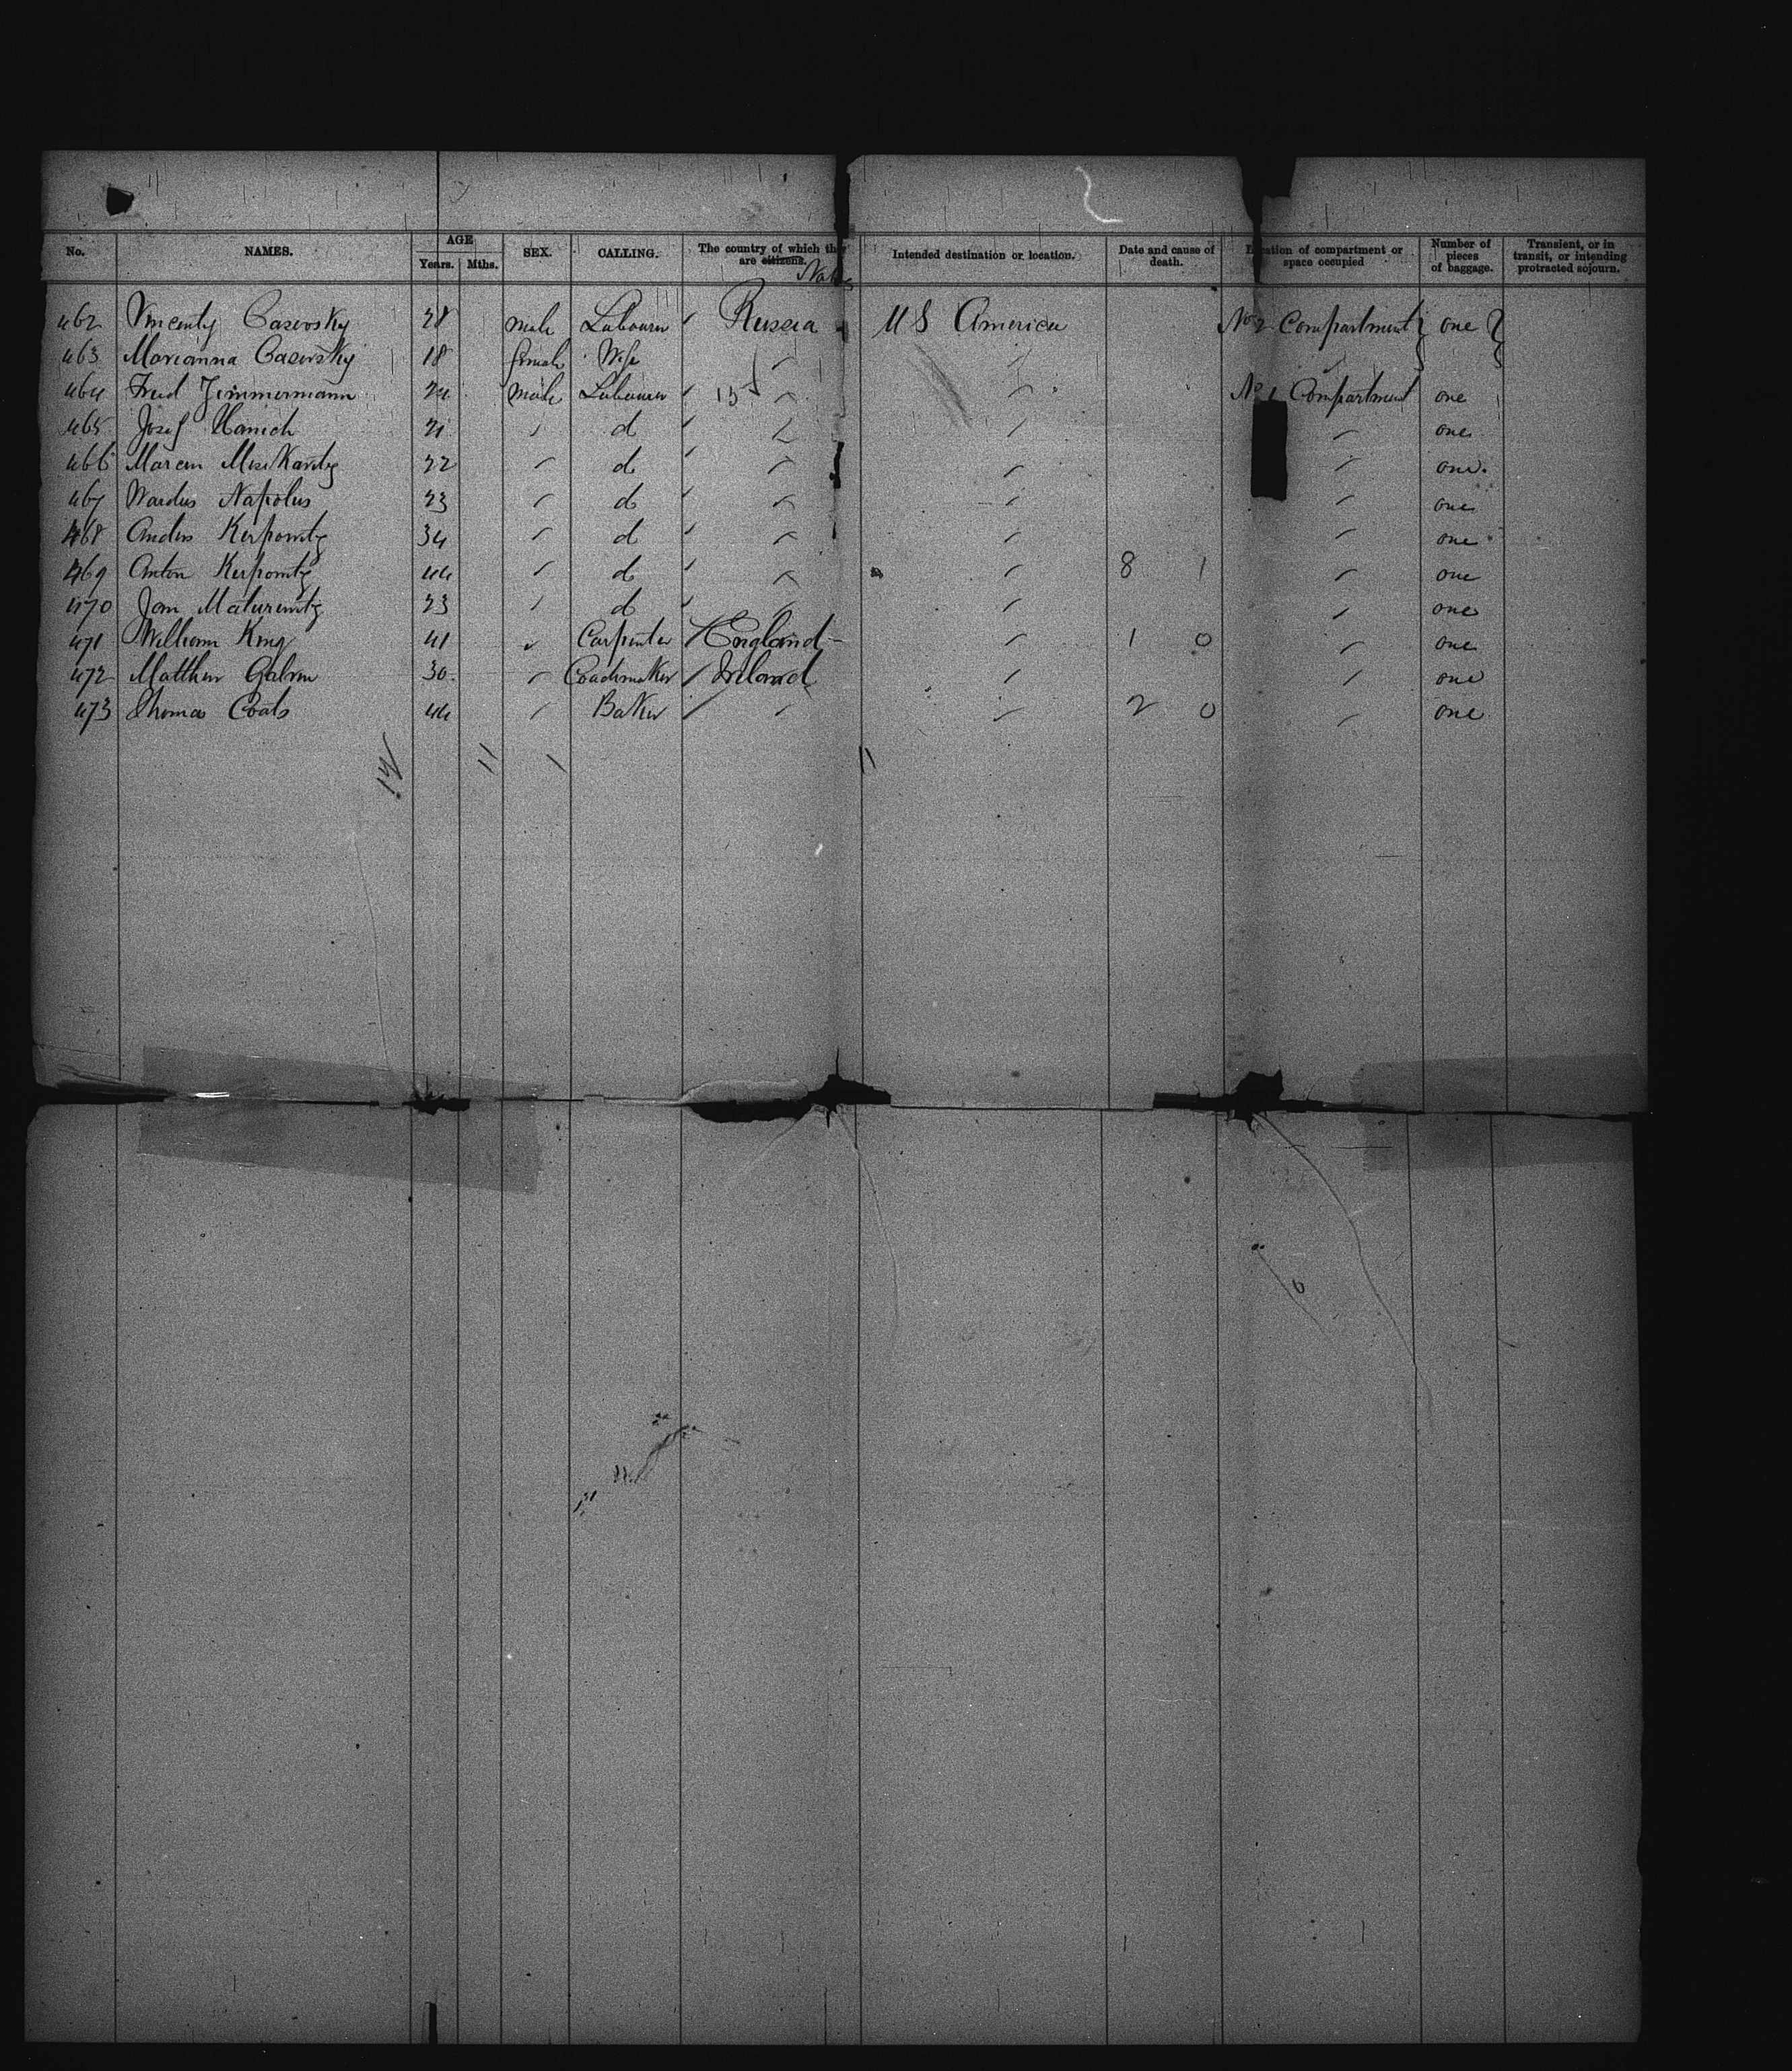 No. NAMES. AGE SEX. CALLING. The country of which they are citizens. Intended destination or location. Date and cause of death. Location of compartment or space occupied Number of pieces of baggage. Transient, or in transit, or intending protracted sojourn.
Years. Mths.
462 Vincenty Casevsky 28 male Labourer Russia U S America No 2 Compartment one
463 Marianna Casevsky 18 female Wife
464 Fred Zimmermann 24 male Labourer 13 No 1 Compartment one
465 Josef Hanich 21 d one
466 22 d one
467 Napolus 23 d one
468 34 d one
469 Anton 44 d 8 1 one
470 Jan 23 d one
471 William King 41 Carpenter England 1 0 one
472 Matthew 30 Coachmaker Ireland one
473 Thomas Coats 44 Baker 2 0 one
12 11 1 11